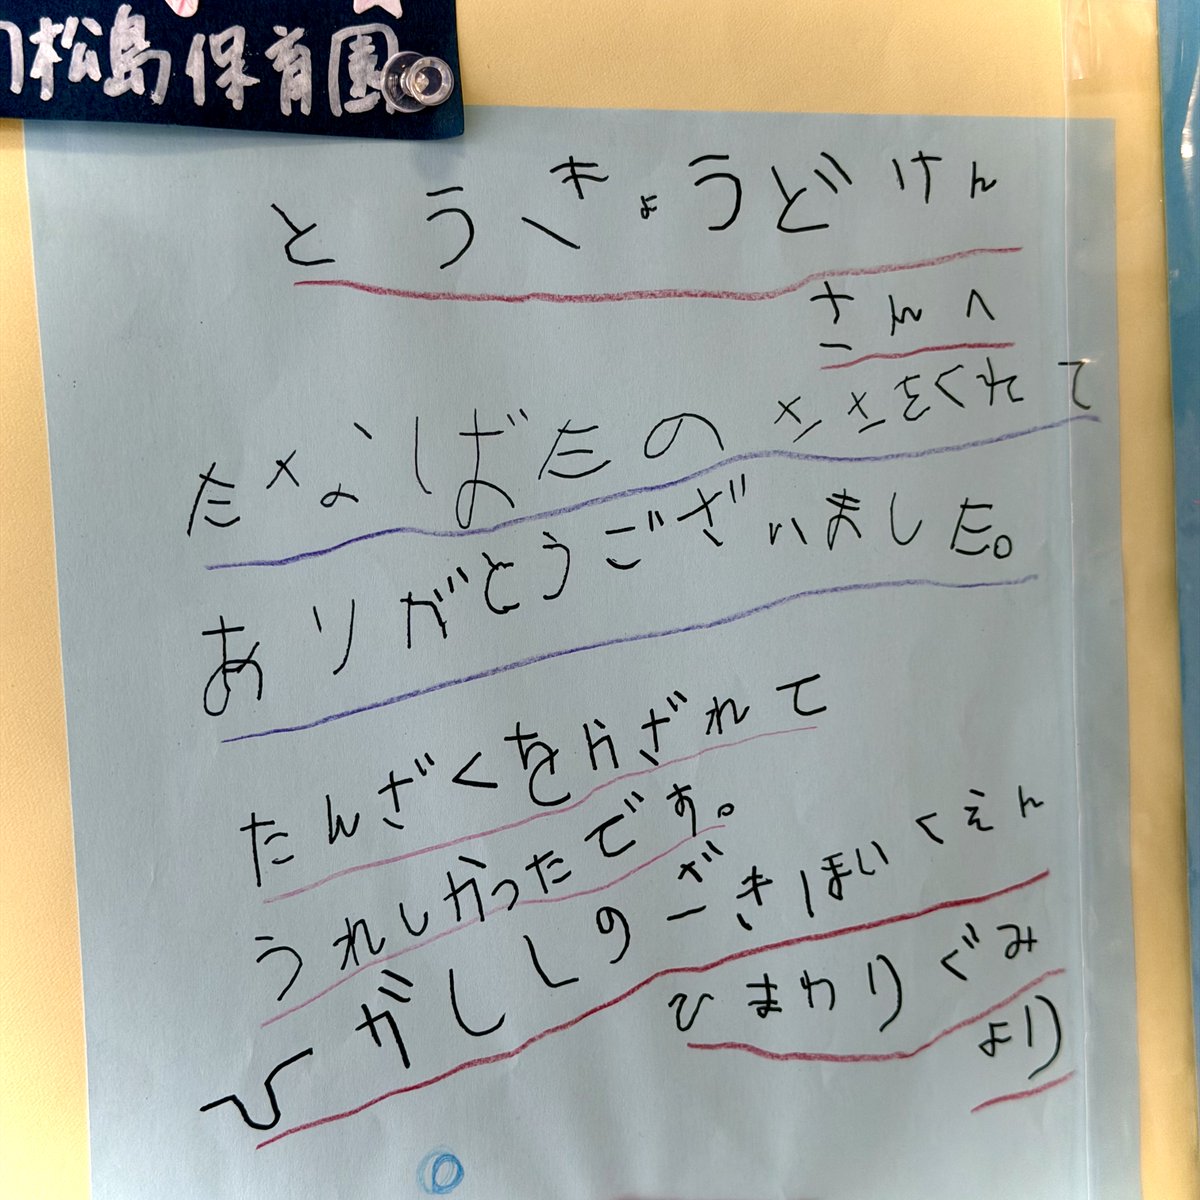 松島保育園
とうきょうどけん
さんへ
たなばたのささをくれて
ありがとうございました。
たんざくをかざれて
うれしかったです。
ひがししのざきほいくえん
ひまわりぐみ
より